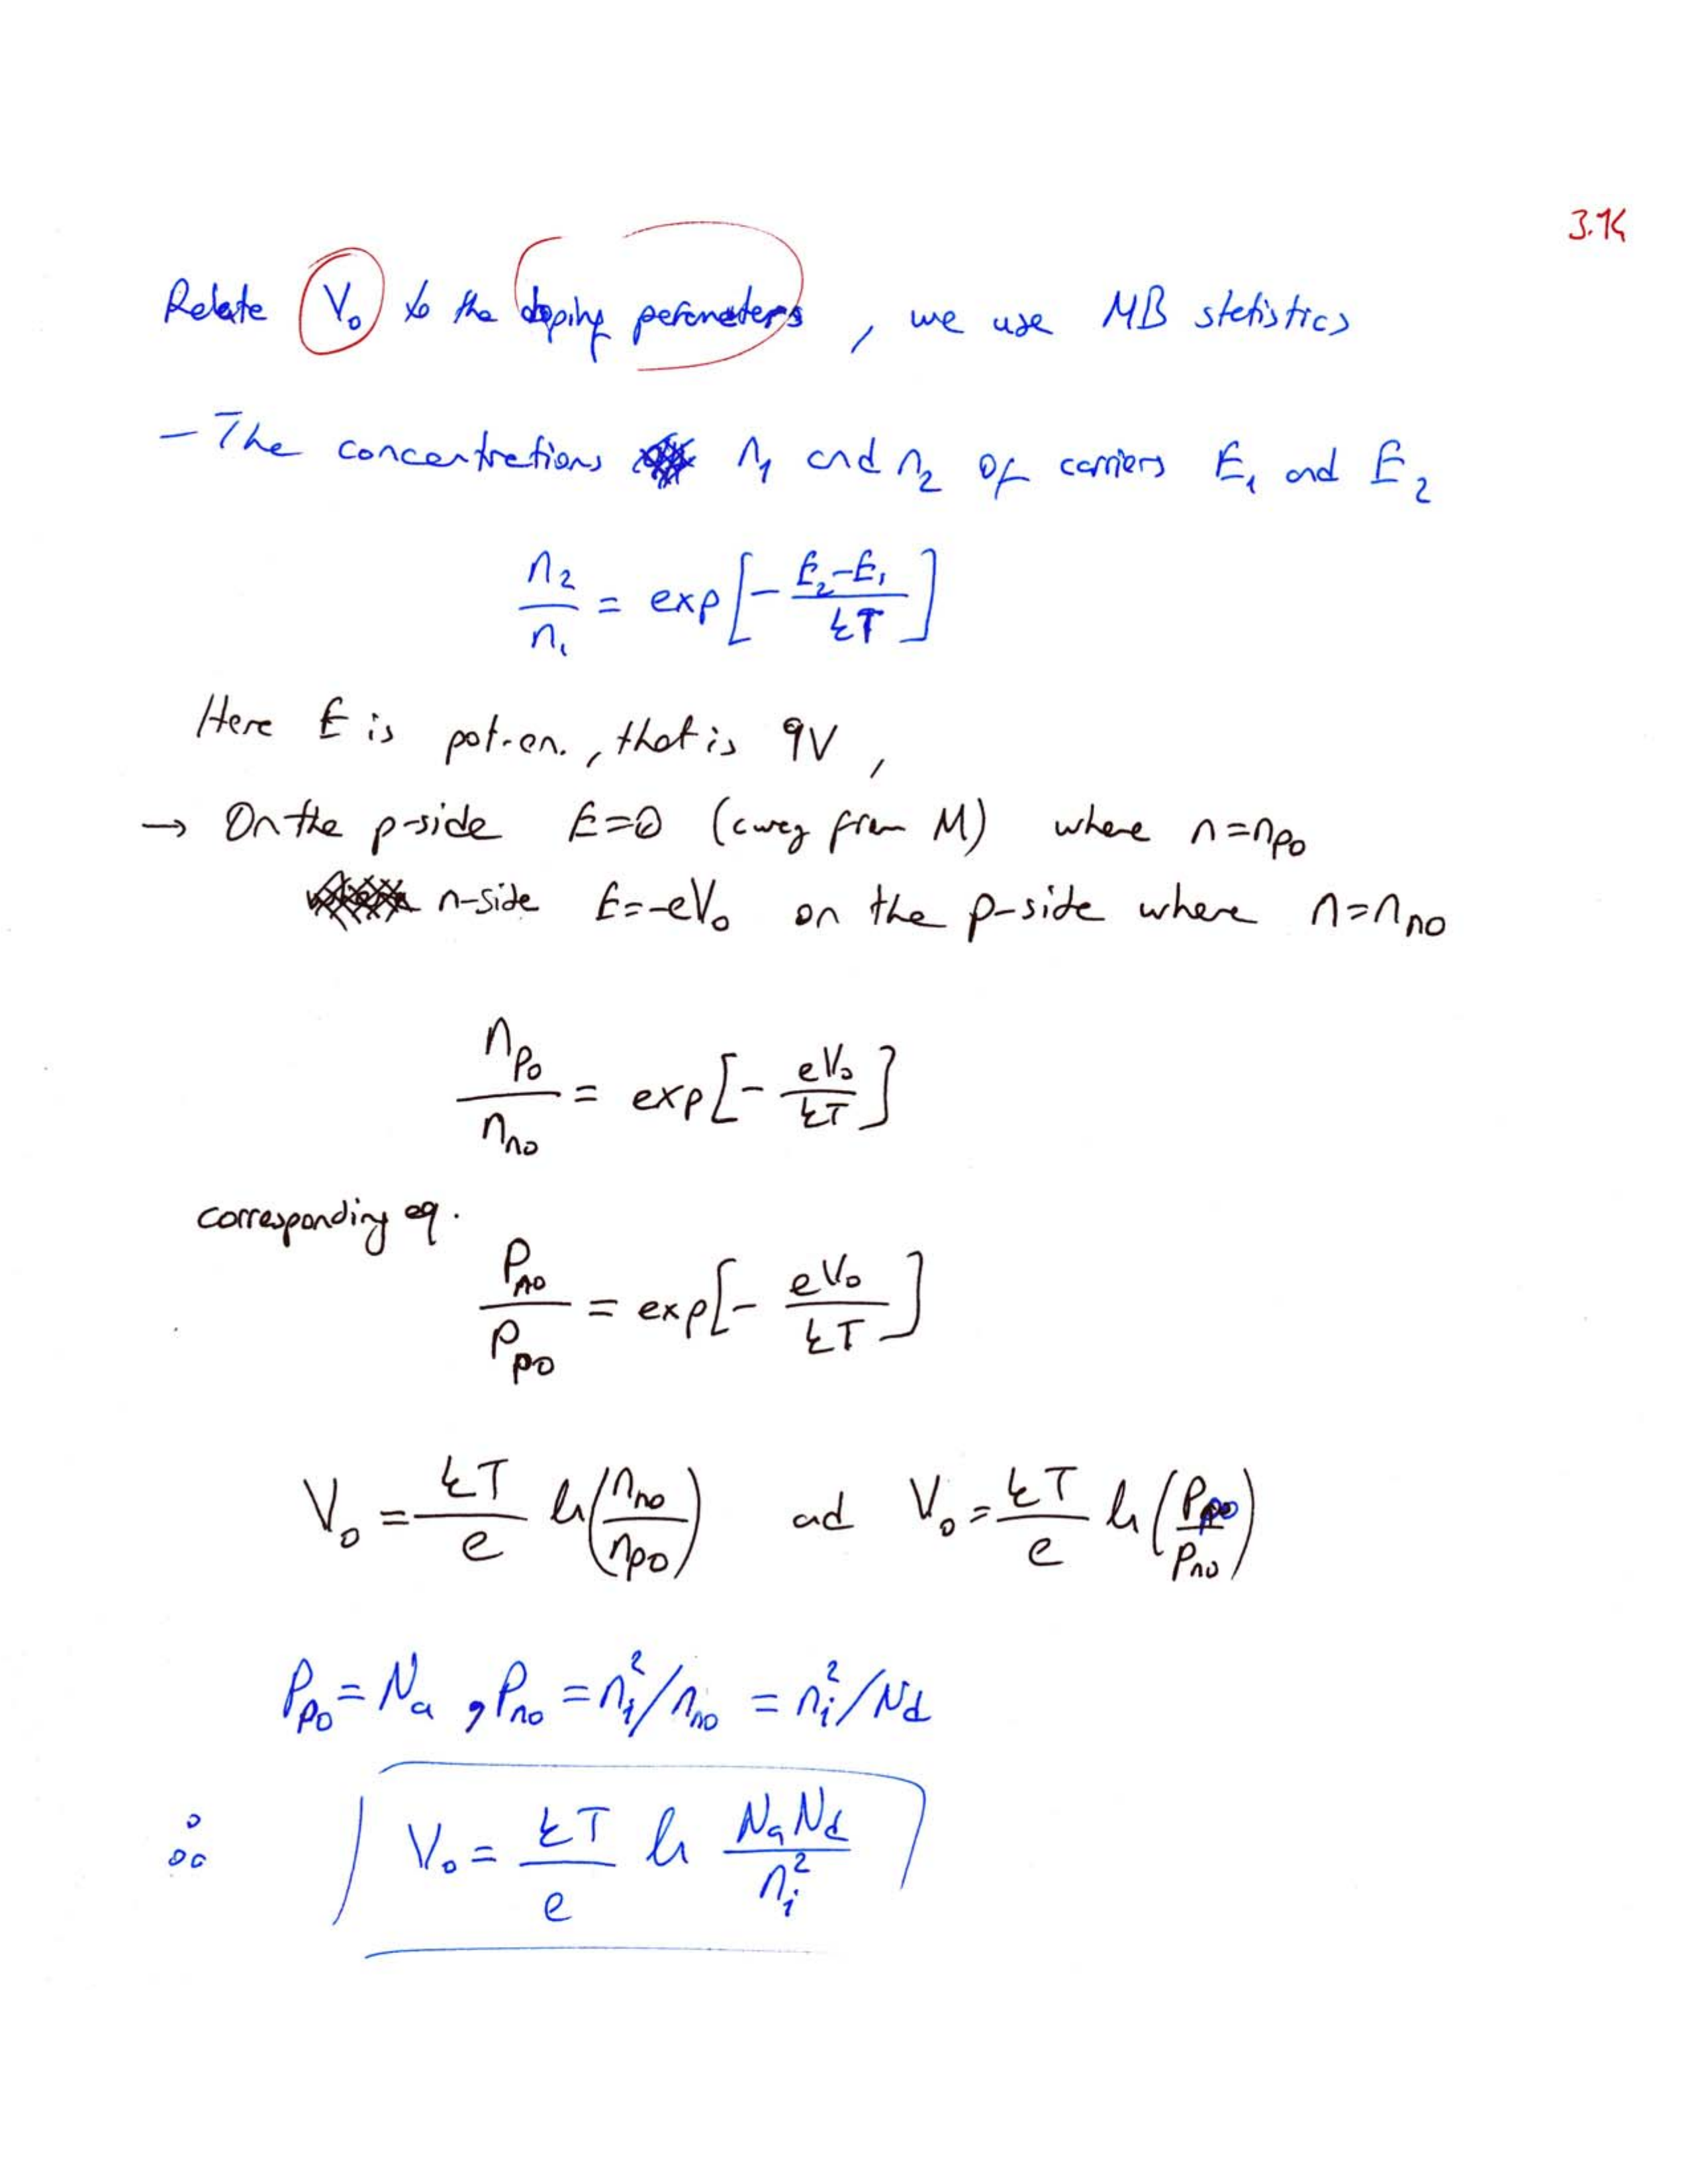 3.14
Relate V₀ to the doping parameters, we use MB statistics
- The concentrations n₁ and n₂ of carriers E₁ and E₂
n₂/n₁ = exp[-(E₂-E₁)/kT]
Here E is pot.en., that is qV,
→ On the p-side E=0 (away from M) where n=nₚ₀
n-side E=-eV₀ on the p-side where n=nₙ₀
nₚ₀/nₙ₀ = exp[-eV₀/kT]
corresponding eq.
Pₙ₀/Pₚ₀ = exp[-eV₀/kT]
V₀ = kT/e ln(nₙ₀/nₚ₀) ad V₀ = kT/e ln(Pₚ₀/Pₙ₀)
Pₚ₀ = Nₐ , Pₙ₀ = nᵢ²/nₙ₀ = nᵢ²/Nd
∴ V₀ = kT/e ln NₐNd/nᵢ²